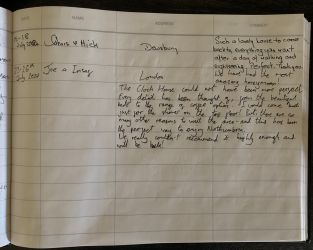 DATE NAME ADDRESS COMMENT
July Mick Dewsbury Such a lovely house to come
back to, everything you want
after a day of walking and
exploring. Perfect. Thank you.
July 2020 Joe & London We have had the most
amazing honeymoon!
The Clock House could not have been more perfect.
Every detail has been thought of, from the beautiful
beds to the range of coffee options. I could come back
just for the shower on the first floor! But there are so
many other reasons to visit the area and this has been
the perfect way to enjoy Northumbria.
We really couldn't recommend it highly enough and
will be back!